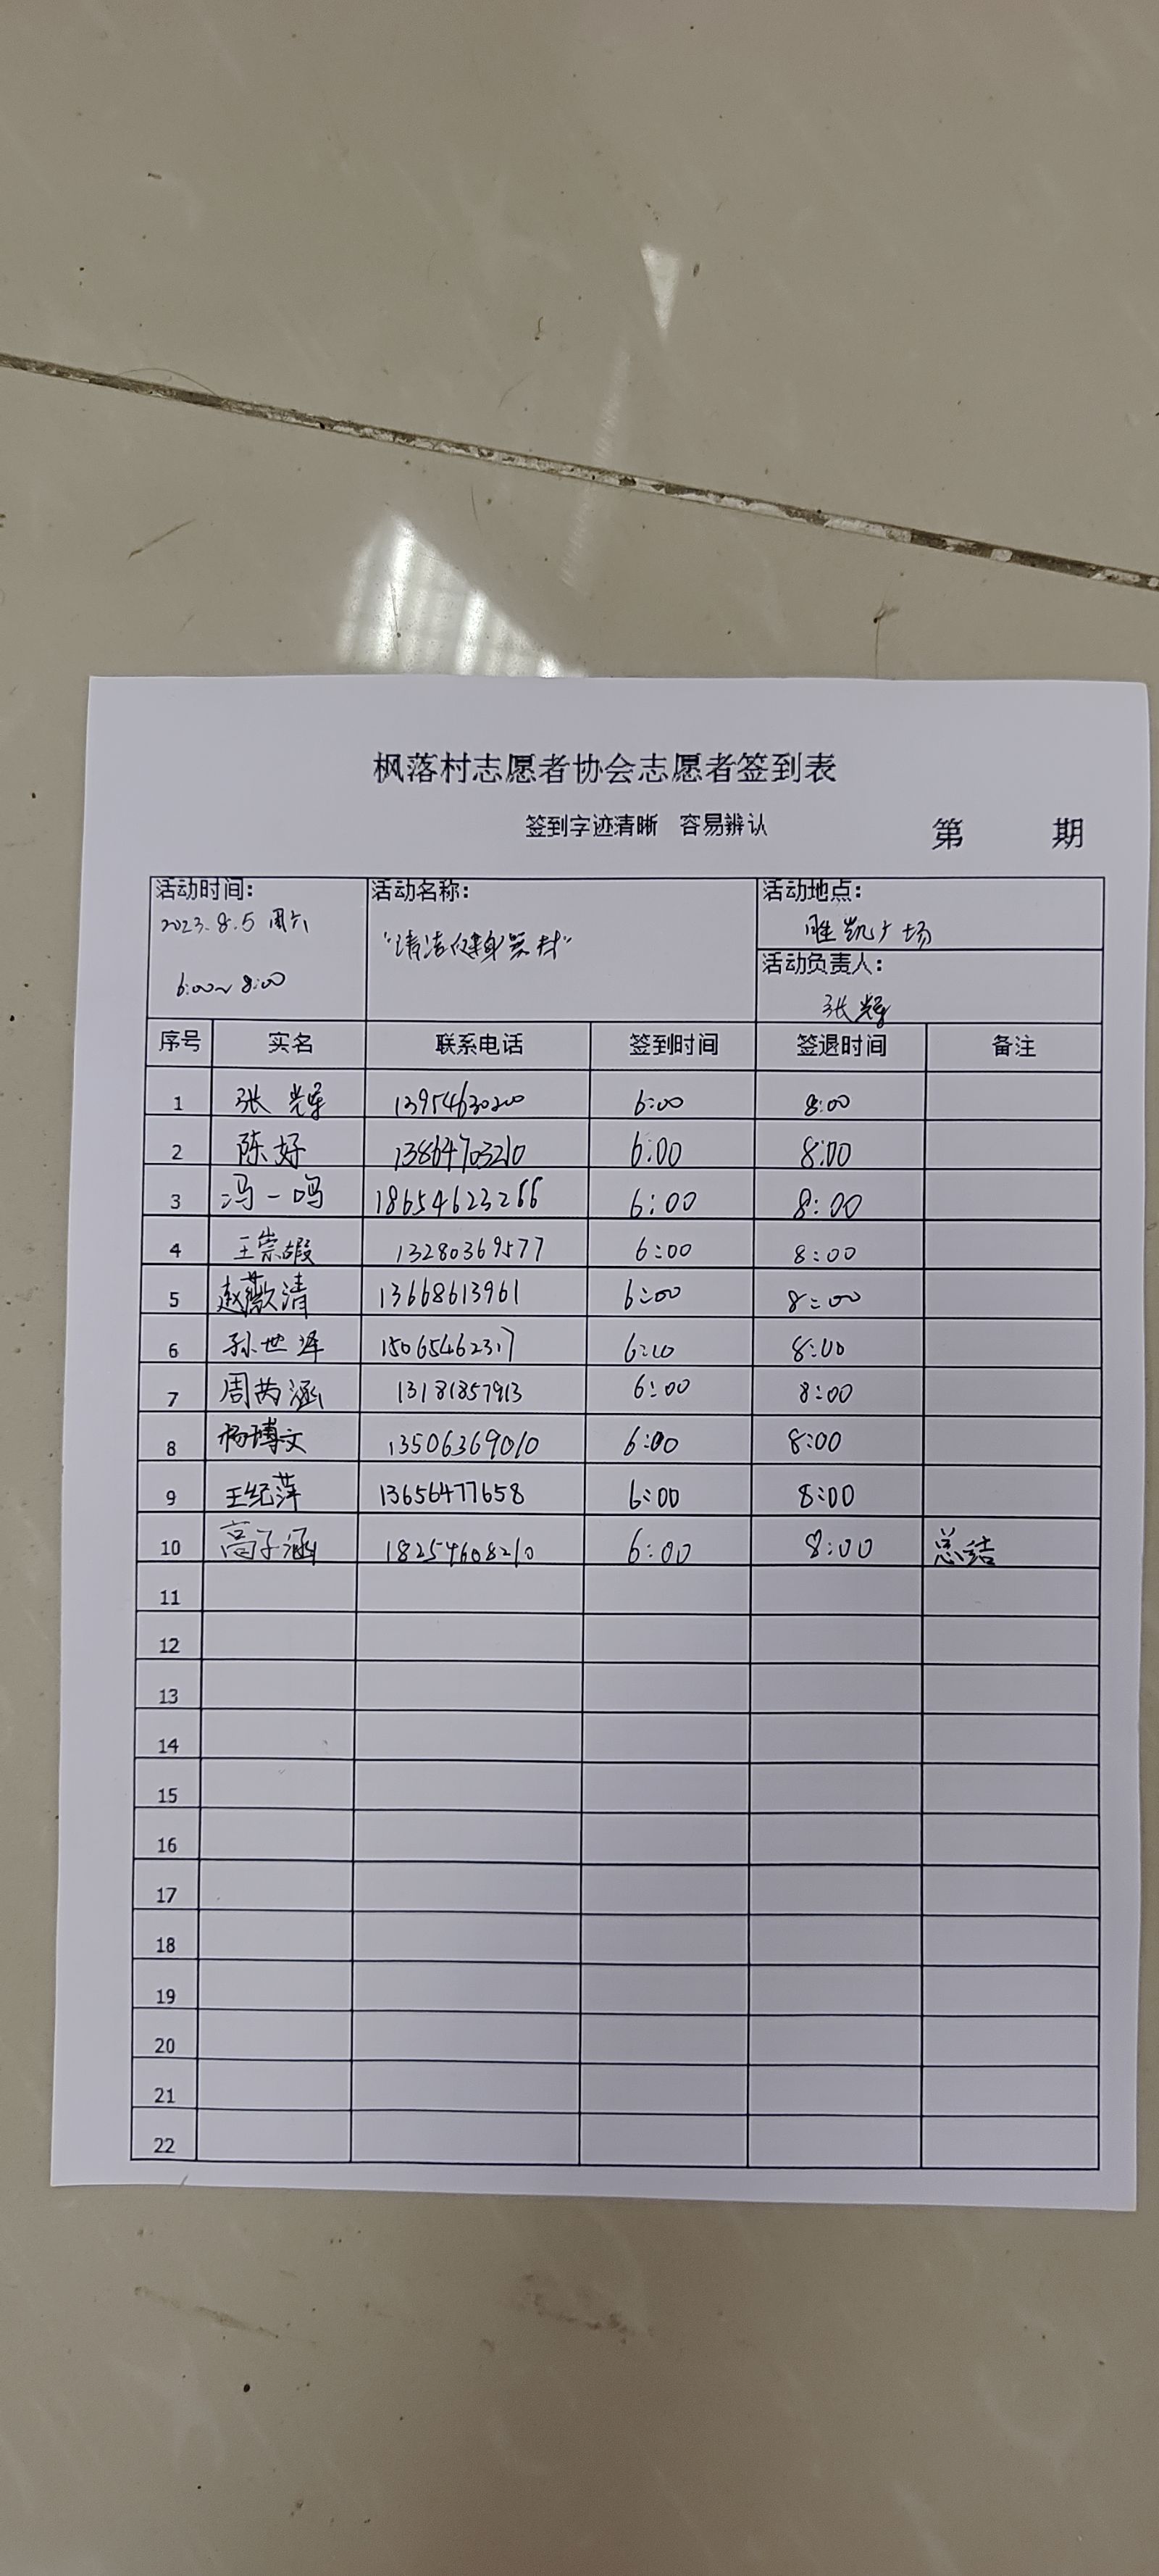 枫落村志愿者协会志愿者签到表
签到字迹清晰 容易辨认
第 期
活动时间: 活动名称: 活动地点:
2023.8.5 周六
"清洁健身器材"
胜凯广场
6:00~8:00
活动负责人:
张辉
序号 实名 联系电话 签到时间 签退时间 备注
1 张辉 13954630200 6:00 8:00
2 陈好 13864703210 6:00 8:00
3 冯一鸣 18654623266 6:00 8:00
4 王崇嘏 13280369577 6:00 8:00
5 赵薇清 13668613961 6:00 8:00
6 孙世泽 15065462317 6:00 8:00
7 周芮涵 13181857913 6:00 8:00
8 杨博文 13506369010 6:00 8:00
9 王纪萍 13656477658 6:00 8:00
10 高子涵 18254608210 6:00 8:00 总结
11
12
13
14
15
16
17
18
19
20
21
22